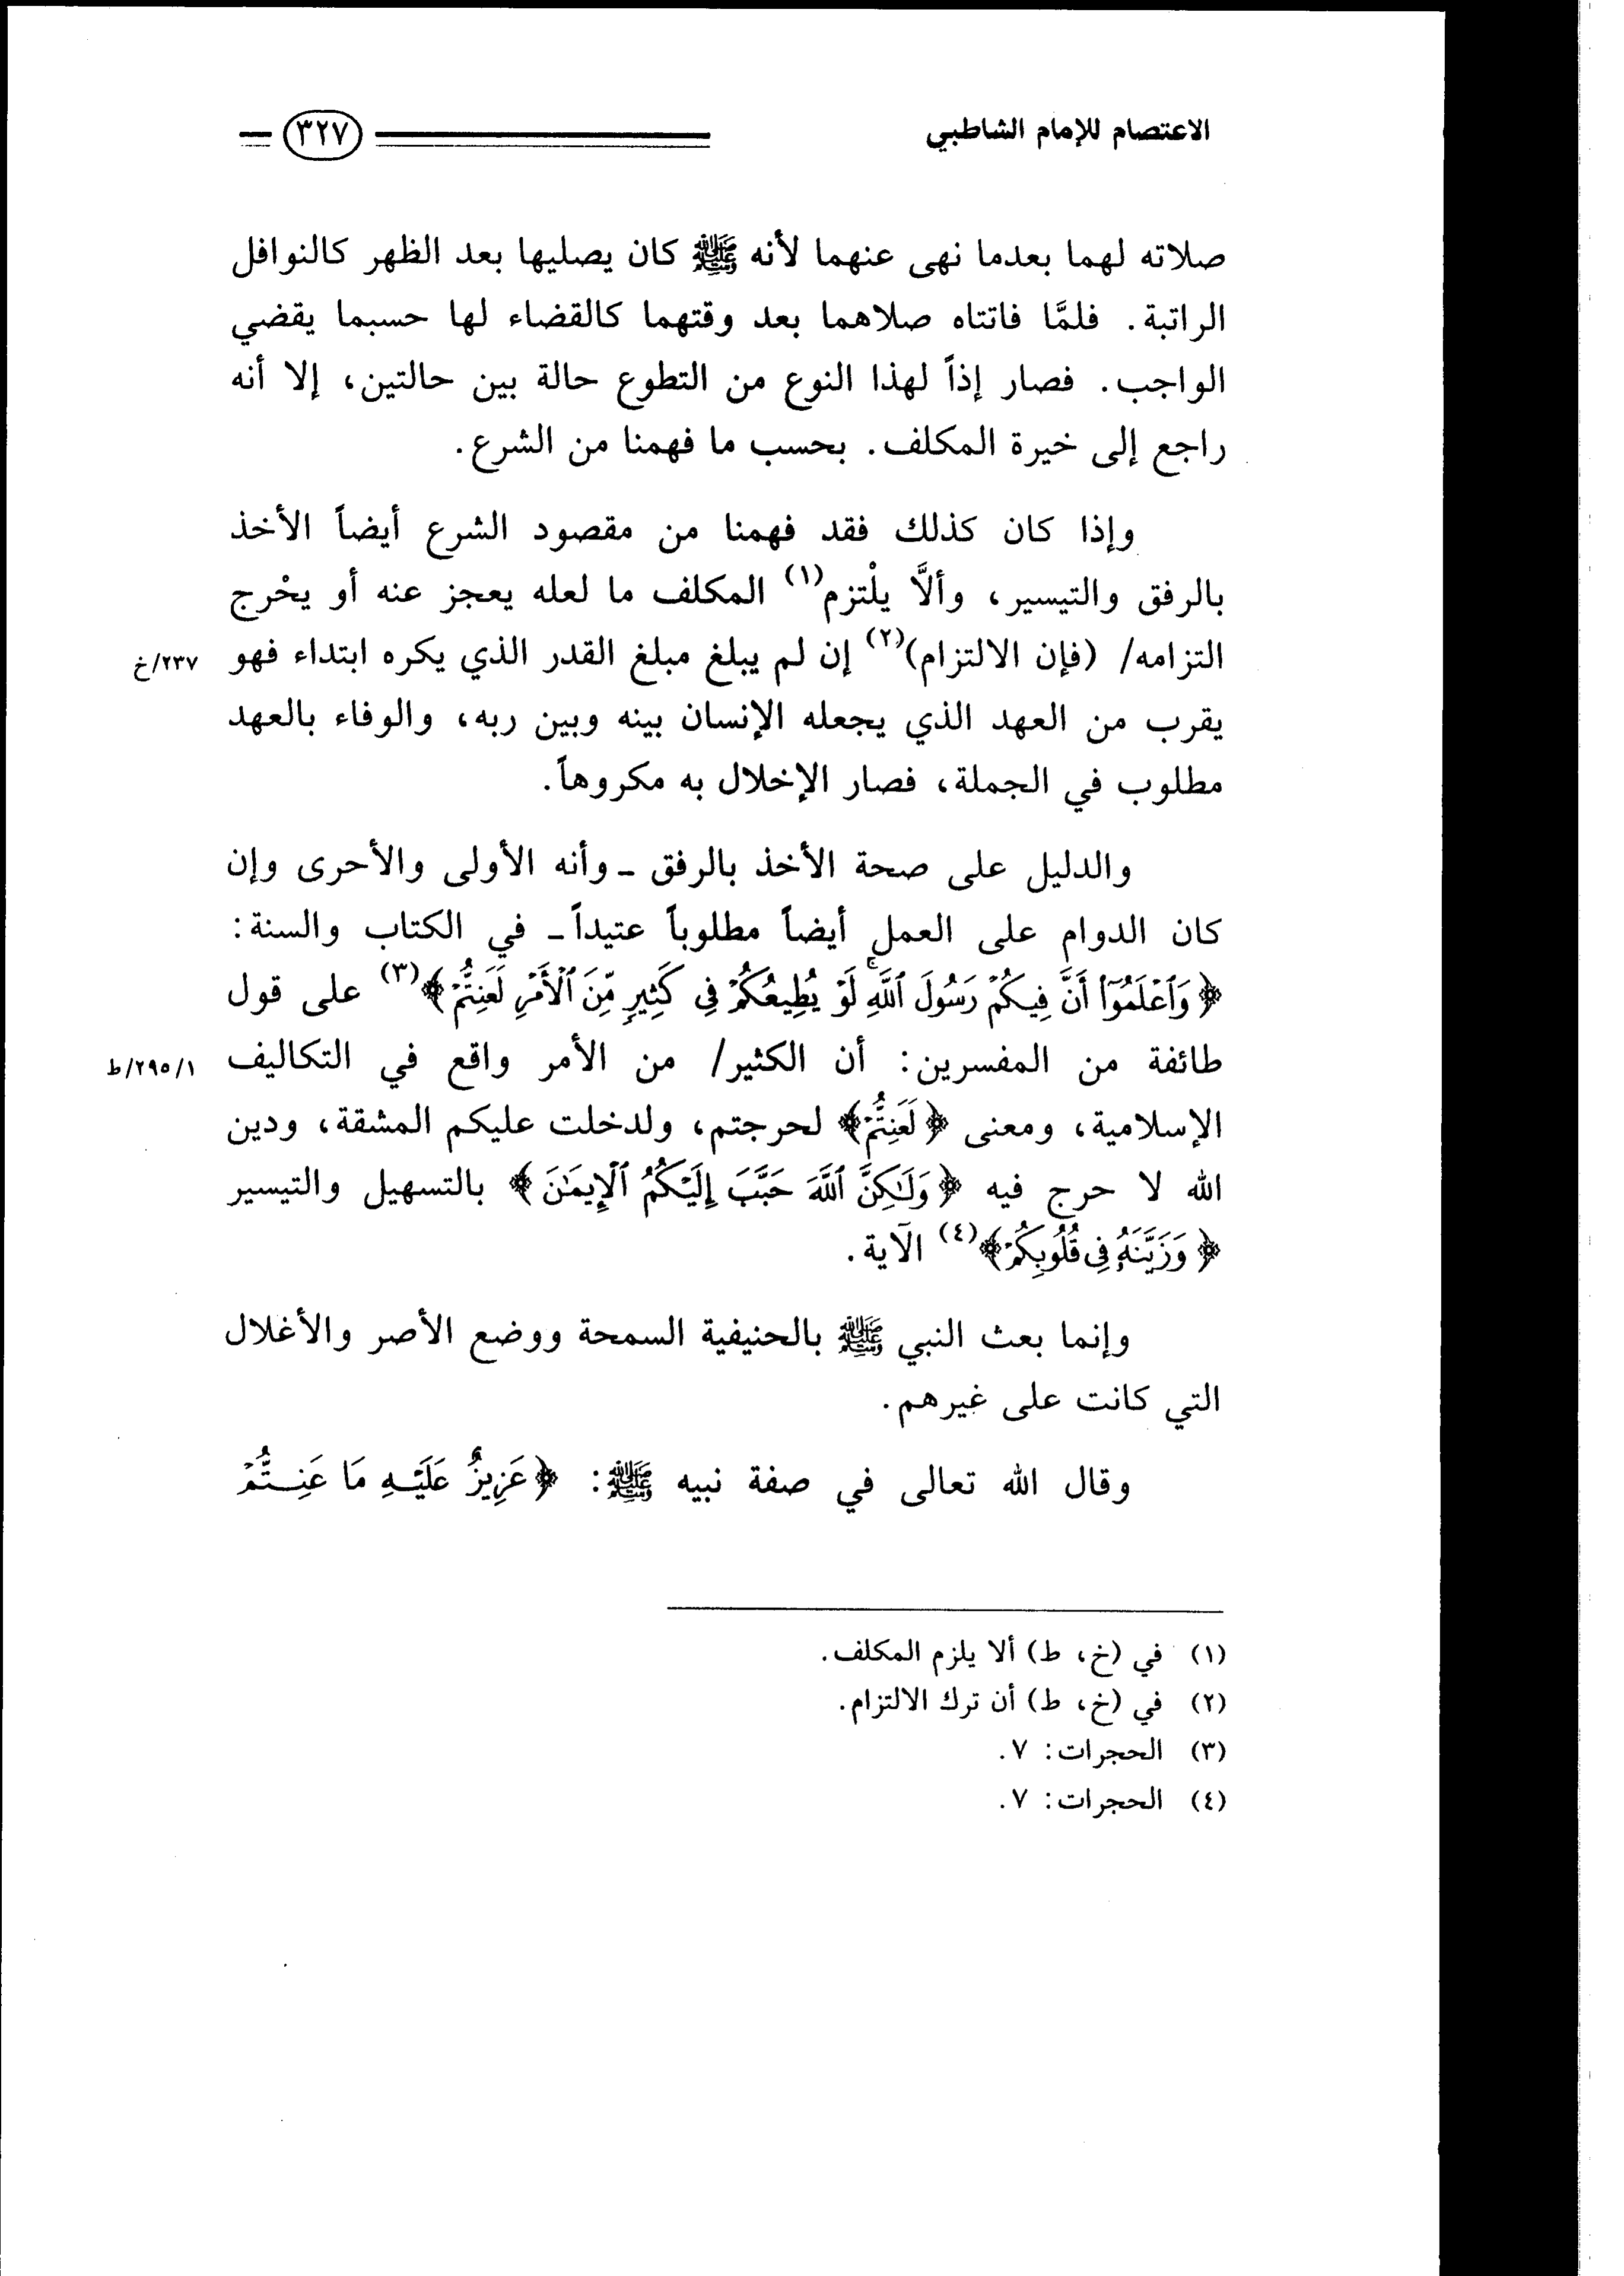 الاعتصام للإمام الشاطبي ٣٢٧
صلاته لهما بعدما نهى عنهما لأنه ﷺ كان يصليها بعد الظهر كالنوافل
الراتبة. فلمَّا فاتتاه صلاهما بعد وقتهما كالقضاء لها حسبما يقضي
الواجب. فصار إذاً لهذا النوع من التطوع حالة بين حالتين، إلا أنه
راجع إلى خيرة المكلف. بحسب ما فهمنا من الشرع.
وإذا كان كذلك فقد فهمنا من مقصود الشرع أيضاً الأخذ
بالرفق والتيسير، وألَّا يلْتزم(١) المكلف ما لعله يعجز عنه أو يحْرج
التزامه/ (فإن الالتزام)(٢) إن لم يبلغ مبلغ القدر الذي يكره ابتداء فهو ٢٣٧/خ
يقرب من العهد الذي يجعله الإنسان بينه وبين ربه، والوفاء بالعهد
مطلوب في الجملة، فصار الإخلال به مكروهاً.
والدليل على صحة الأخذ بالرفق - وأنه الأولى والأحرى وإن
كان الدوام على العمل أيضاً مطلوباً عتيداً - في الكتاب والسنة:
﴿وَٱعۡلَمُوٓاْ أَنَّ فِيكُمۡ رَسُولَ ٱللَّهِۚ لَوۡ يُطِيعُكُمۡ فِي كَثِيرٖ مِّنَ ٱلۡأَمۡرِ لَعَنِتُّمۡ﴾(٣) على قول
طائفة من المفسرين: أن الكثير/ من الأمر واقع في التكاليف ٢٩٥/١/ط
الإسلامية، ومعنى ﴿لَعَنِتُّمۡ﴾ لحرجتم، ولدخلت عليكم المشقة، ودين
الله لا حرج فيه ﴿وَلَٰكِنَّ ٱللَّهَ حَبَّبَ إِلَيۡكُمُ ٱلۡإِيمَٰنَ﴾ بالتسهيل والتيسير
﴿وَزَيَّنَهُۥ فِي قُلُوبِكُمۡ﴾(٤) الآية.
وإنما بعث النبي ﷺ بالحنيفية السمحة ووضع الأصر والأغلال
التي كانت على غيرهم.
وقال الله تعالى في صفة نبيه ﷺ: ﴿عَزِيزٌ عَلَيۡهِ مَا عَنِتُّمۡ
(١) في (خ، ط) ألا يلزم المكلف.
(٢) في (خ، ط) أن ترك الالتزام.
(٣) الحجرات: ٧.
(٤) الحجرات: ٧.